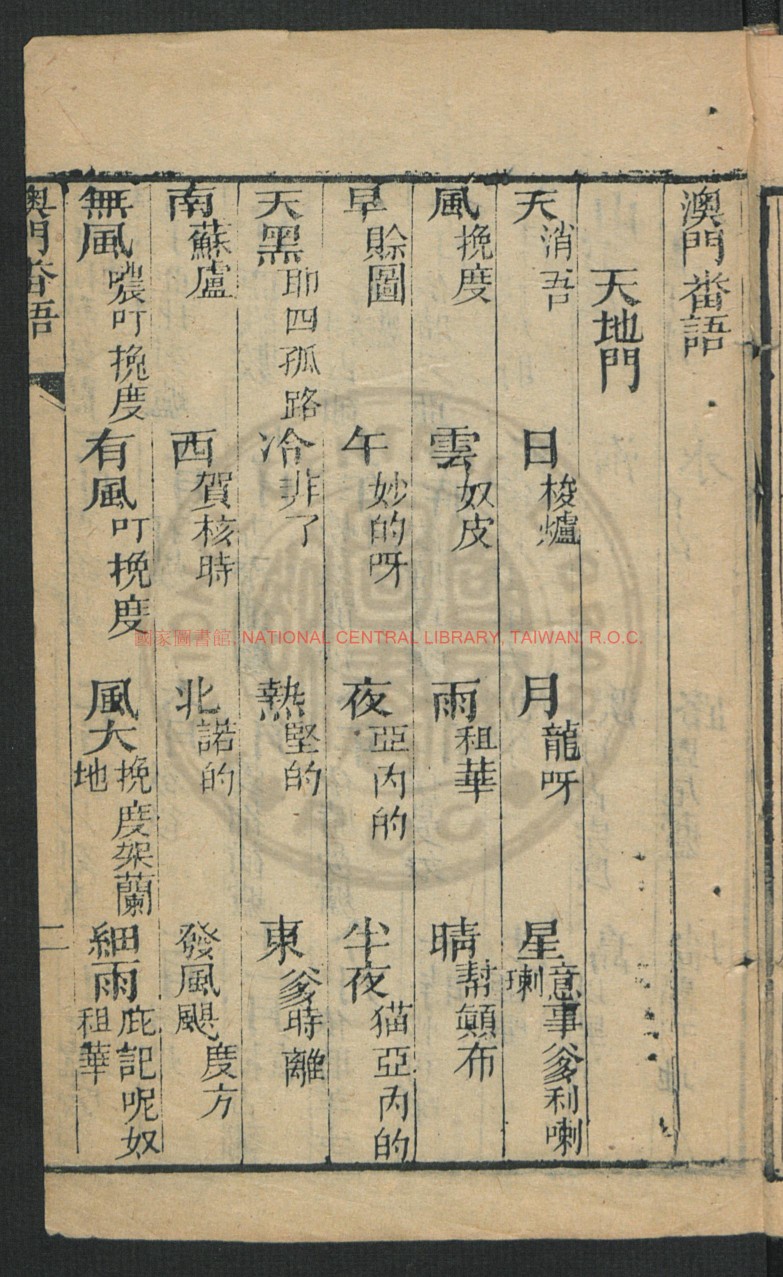 澳門番語
天地門
天 消吾 日 梭爐 月 龍呀 星 意事爹利喇喇
風 挽度 雲 奴皮 雨 租華 晴 幇顛布
早 賒圖 午 妙的呀 夜 亞內的 半夜 猫亞內的
天黑 耶四孤路 冷 非了 熱 堅的 東 爹時離
南 蘇盧 西 賀核時 北 諾的 發風颶 度方
無風 噥叮挽度 有風 叮挽度 風大 挽度架蘭地 細雨 庇記呢奴租華
澳門番語
二
國家圖書館, NATIONAL CENTRAL LIBRARY, TAIWAN, R.O.C.